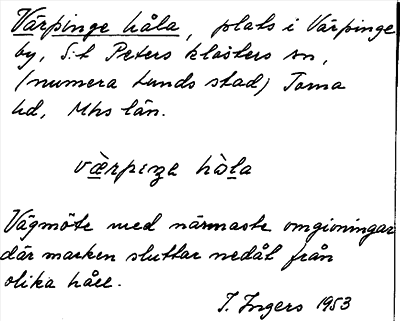 Värpinge håla, plats i Värpinge
by, S:t Peters klosters sn,
(numera Lunds stad) Torna
hd, Mhs län.
væ̀rpıŋa hɷ̀la
Vägmöte med närmaste omgivningar
där marken sluttar nedåt från
olika håll.
I. Ingers 1953